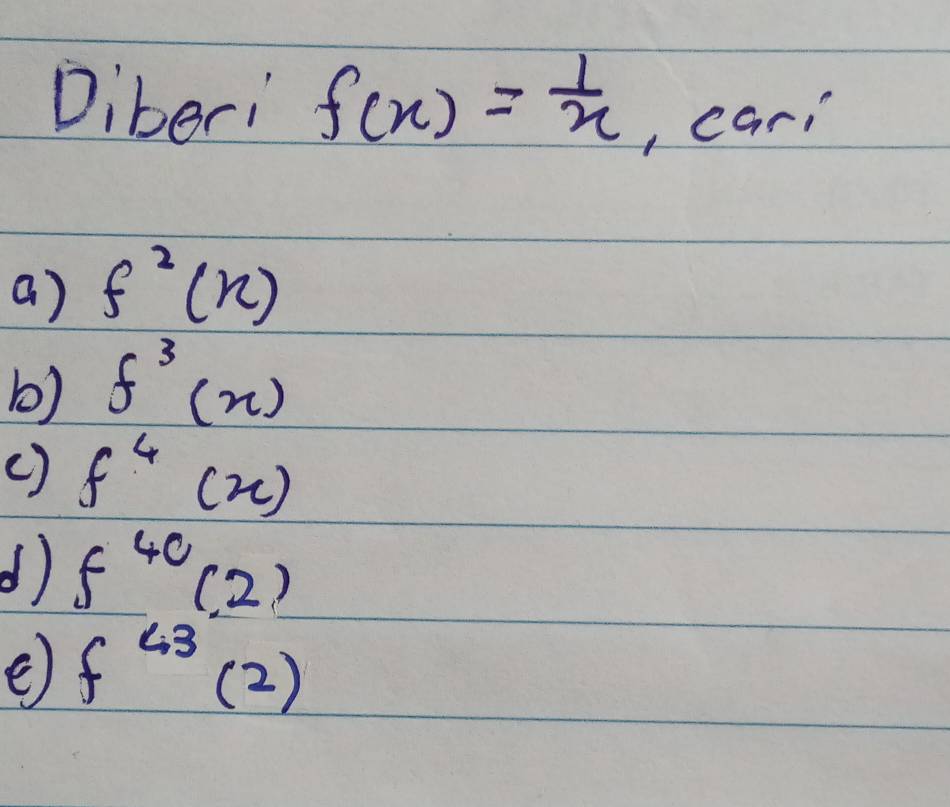 Diberi f(x) = 1/x, cari
a) f²(x)
b) f³(x)
c) f⁴(x)
d) f⁴⁰(2)
e) f⁴³(2)